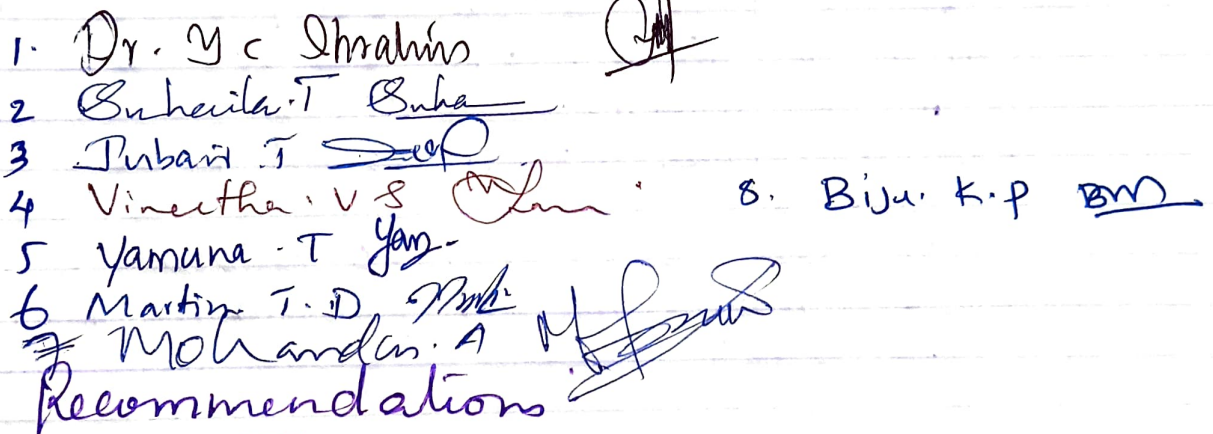 1. Dr. Y C Ibrahim
2 Suhaila. T Suha
3 Jubair. T
4 Vineetha. V S
8. Biju. K.P
5 Yamuna. T Yam
6 Martin T. D.
7 Mohandas. A
Recommendations